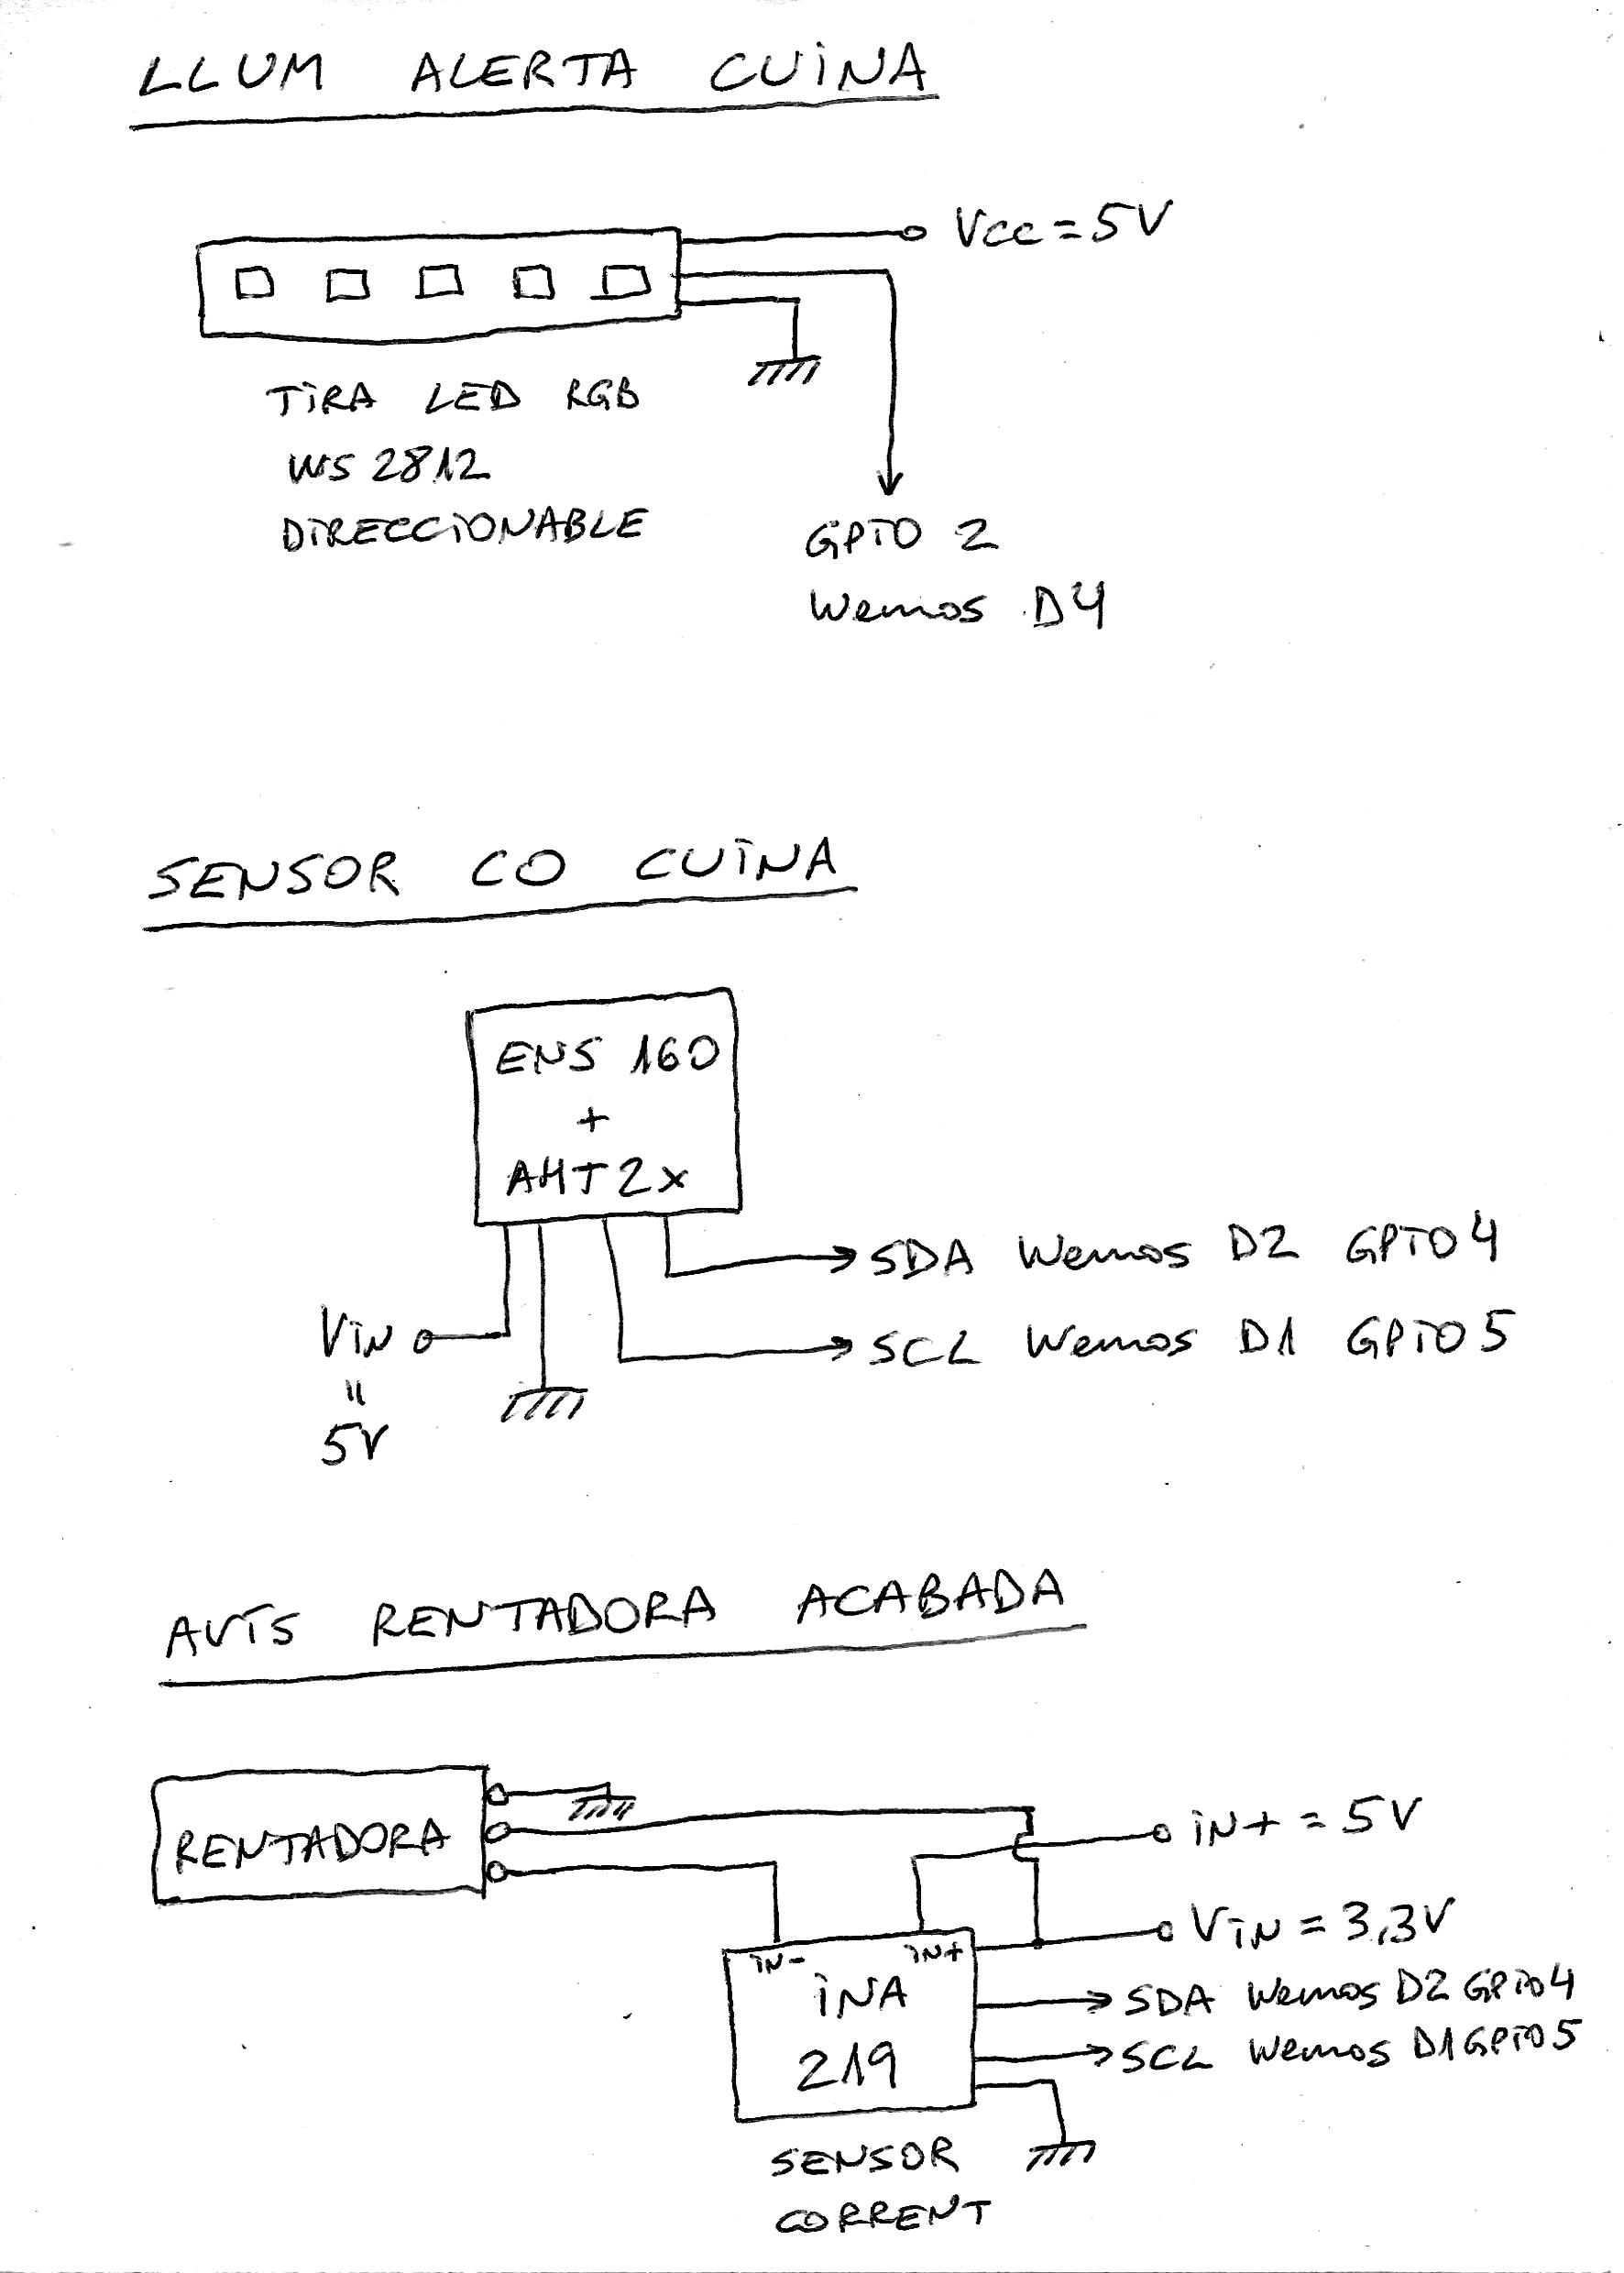 LLUM ALERTA CUINA
Vcc = 5V
TIRA LED RGB
WS 2812
DIRECCIONABLE
GPIO 2
Wemos D4
SENSOR CO CUINA
ENS 160
+
AHT2x
SDA Wemos D2 GPIO4
VIN
SCL Wemos D1 GPIO5
=
5V
AVÍS RENTADORA ACABADA
RENTADORA
IN+ = 5V
VIN = 3,3V
IN- IN+
INA
SDA Wemos D2 GPIO4
SCL Wemos D1 GPIO5
219
SENSOR
CORRENT